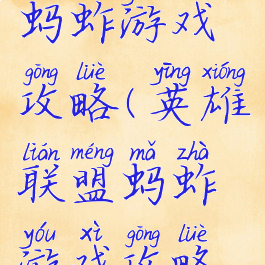 蚂蚱游戏
gōng lüè yīng xióng
攻略(英雄
lián méng mǎ zhà
联盟蚂蚱
yóu xì gōng lüè
游戏攻略